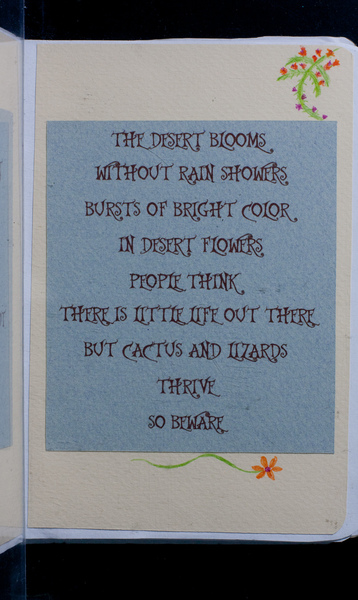 THE DESERT BLOOMS
WITHOUT RAIN SHOWERS
BURSTS OF BRIGHT COLOR
IN DESERT FLOWERS
PEOPLE THINK
THERE IS LITTLE LIFE OUT THERE
BUT CACTUS AND LIZARDS
THRIVE
SO BEWARE.